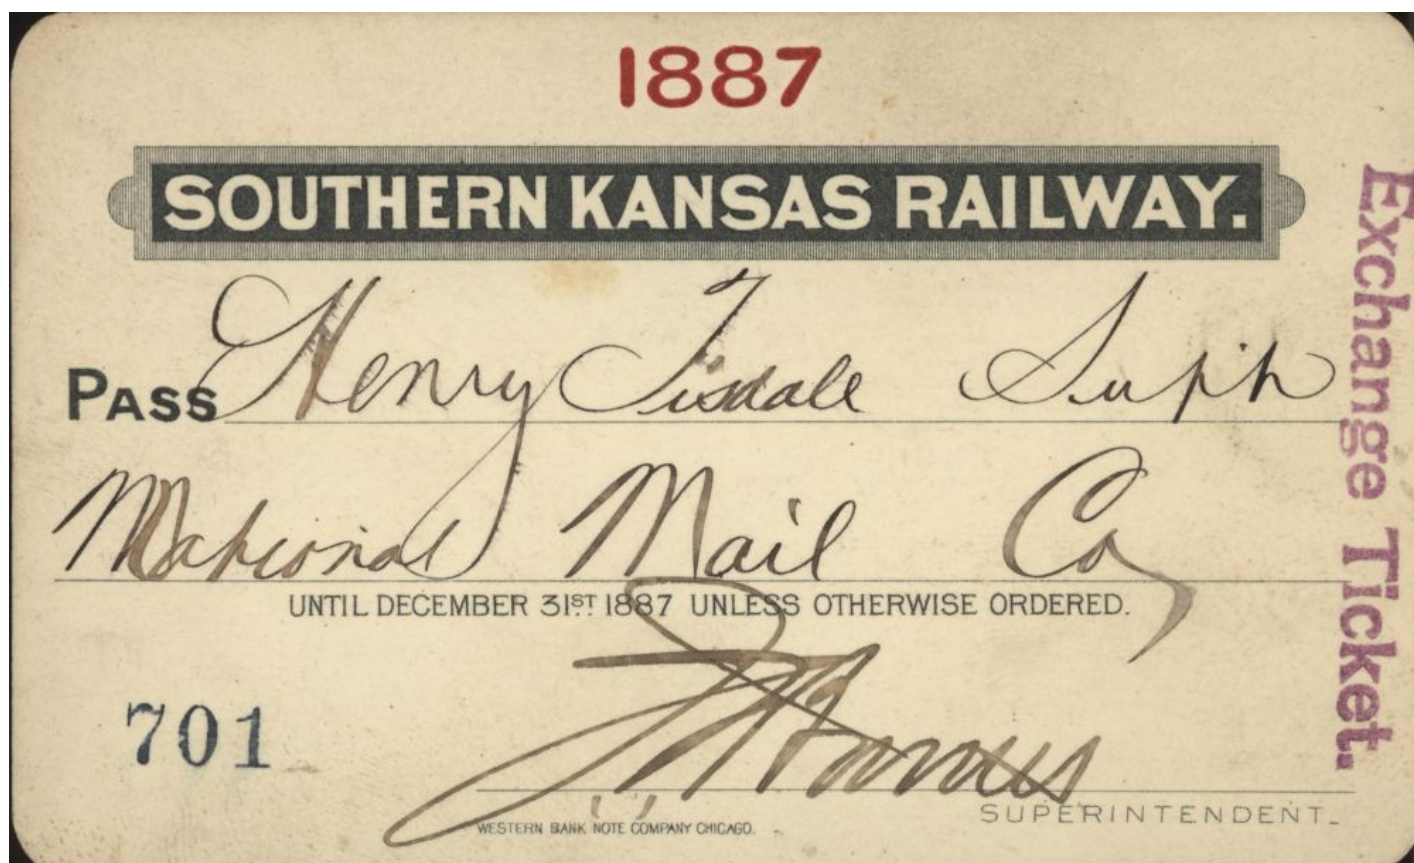 1887
SOUTHERN KANSAS RAILWAY.
PASS Henry Tisdale Supt
National Mail Co
UNTIL DECEMBER 31ST 1887 UNLESS OTHERWISE ORDERED.
701
SUPERINTENDENT.
WESTERN BANK NOTE COMPANY CHICAGO.
Exchange Ticket.